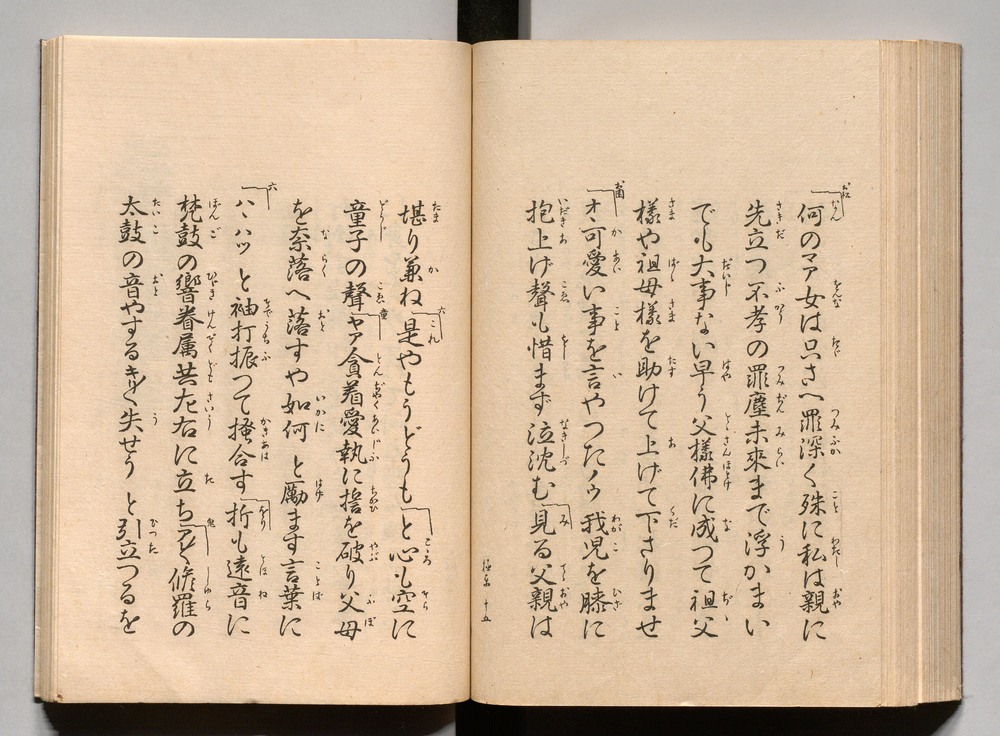 何のマア女は只さへ罪深く殊に私は親に
先立つ不孝の罪塵未來まで浮かまい
でも大事ない早う父樣佛に成つて祖父
樣や祖母樣を助けて上げて下さりませ
オヽ可愛い事を言やつたノウ我児を膝に
抱上げ聲も惜まず泣沈む見る父親は
極樂 十五
堪り兼ね是やもうどうもと心も空に
童子の聲ヤア貪着愛執に誓を破り父母
を奈落へ落すや如何と勵ます言葉に
ハヽハツと袖打振つて掻合す折も遠音に
梵鼓の響眷属共左右に立ち修羅の
太鼓の音やする失せうと引立つるを